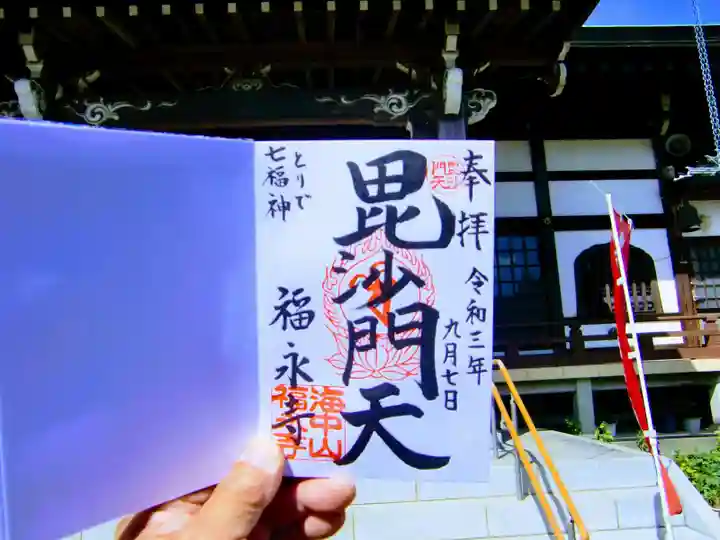 奉拝
令和三年
九月七日
毘沙門天
福永寺
とりで
七福神
海中山
福永寺